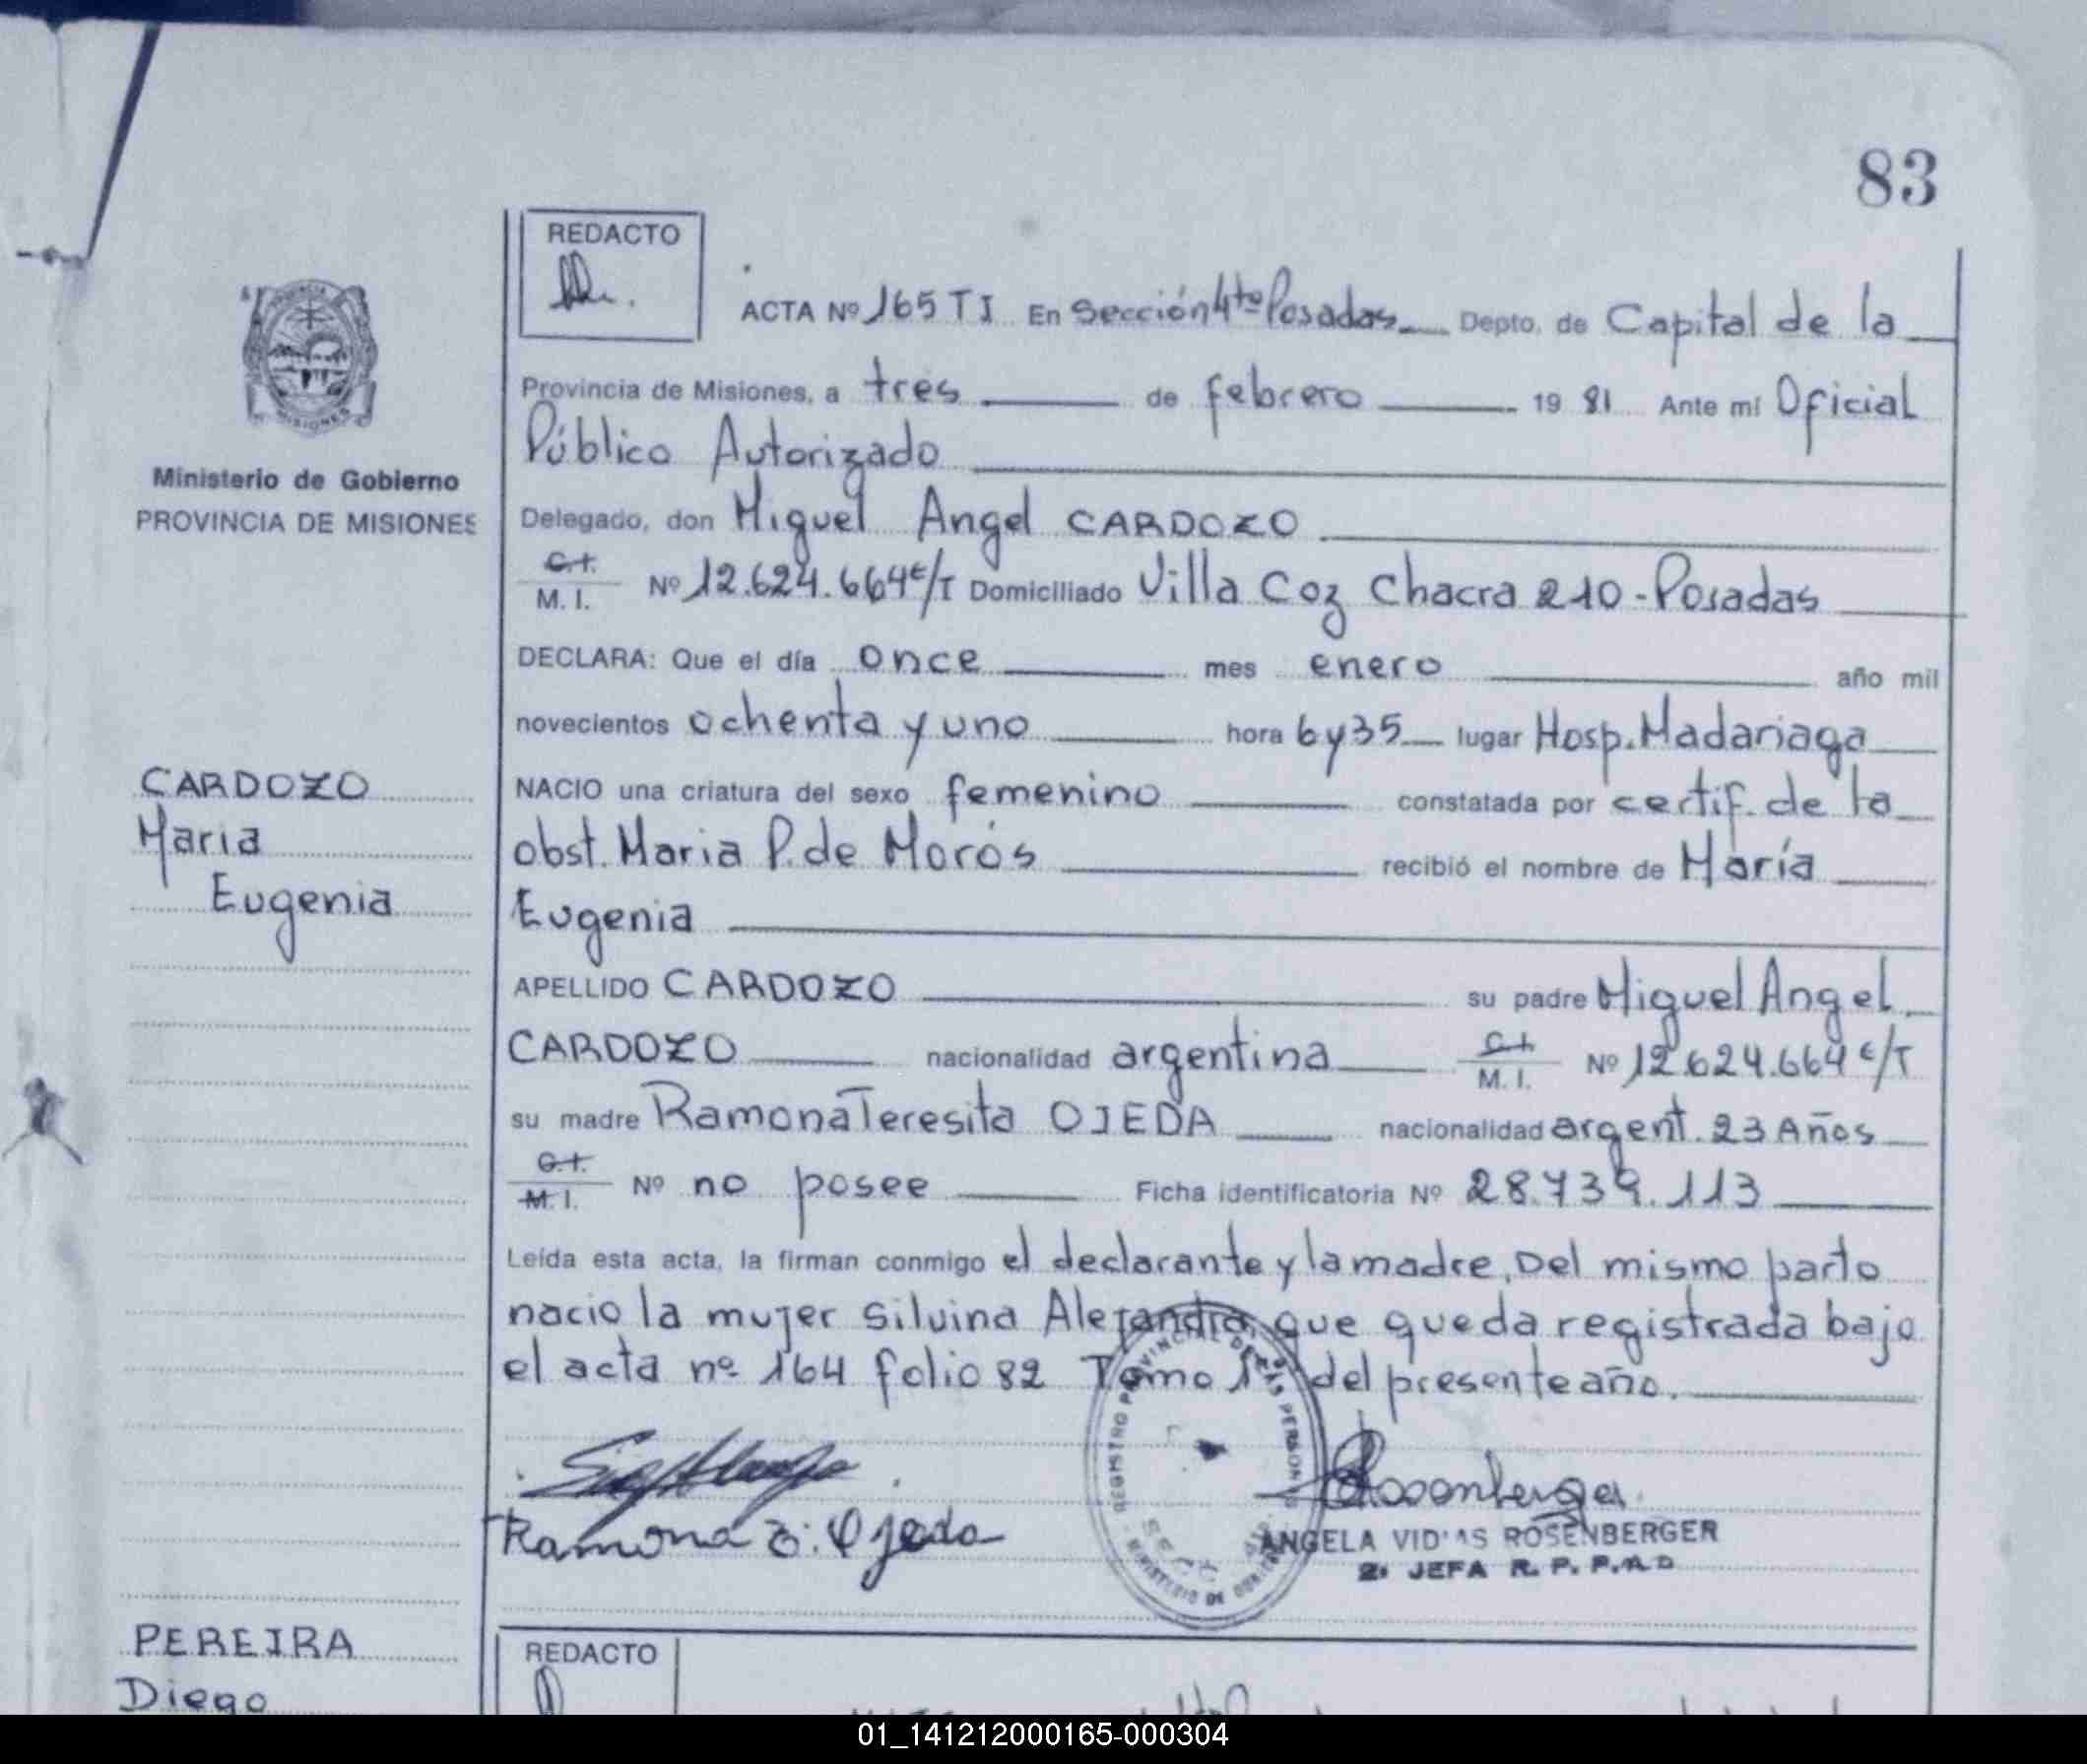 83
REDACTO
ACTA Nº 165 TI En Sección 4ta Posadas Depto. de Capital de la
Provincia de Misiones, a tres de febrero 19 81 Ante mí Oficial
Público Autorizado
Ministerio de Gobierno
PROVINCIA DE MISIONES
Delegado, don Miguel Angel CARDOZO
C.I.
M. I. Nº 12.624.664 E/T Domiciliado Villa Coz Chacra 210 - Posadas
DECLARA: Que el día once mes enero año mil
novecientos ochenta y uno hora 6 y 35 lugar Hosp. Madariaga
CARDOZO
Maria
Eugenia
NACIO una criatura del sexo femenino constatada por certif. de la
obst. Maria P. de Morós recibió el nombre de María
Eugenia
APELLIDO CARDOZO su padre Miguel Angel
CARDOZO nacionalidad argentina C.I.
M. I. Nº 12.624.664 E/T
su madre Ramona Teresita OJEDA nacionalidad argent. 23 Años
C.I.
M. I. Nº no posee Ficha identificatoria Nº 28.739.113
Leída esta acta, la firman conmigo el declarante y la madre, Del mismo parto
nacio la mujer Silvina Alejandra, que queda registrada bajo
el acta nº 164 folio 82 Tomo 1º del presente año.
Ramona T. Ojeda
Rosenberger
REGISTRO PROVINCIAL DE LAS PERSONAS
MINISTERIO DE GOBIERNO
ANGELA VIDAS ROSENBERGER
2ª JEFA R. P. P.
PEREIRA
Diego
REDACTO
01_141212000165-000304